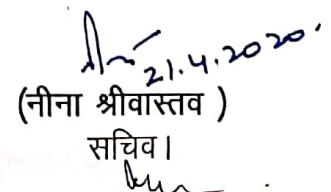 21.4.2020.
(नीना श्रीवास्तव )
सचिव।